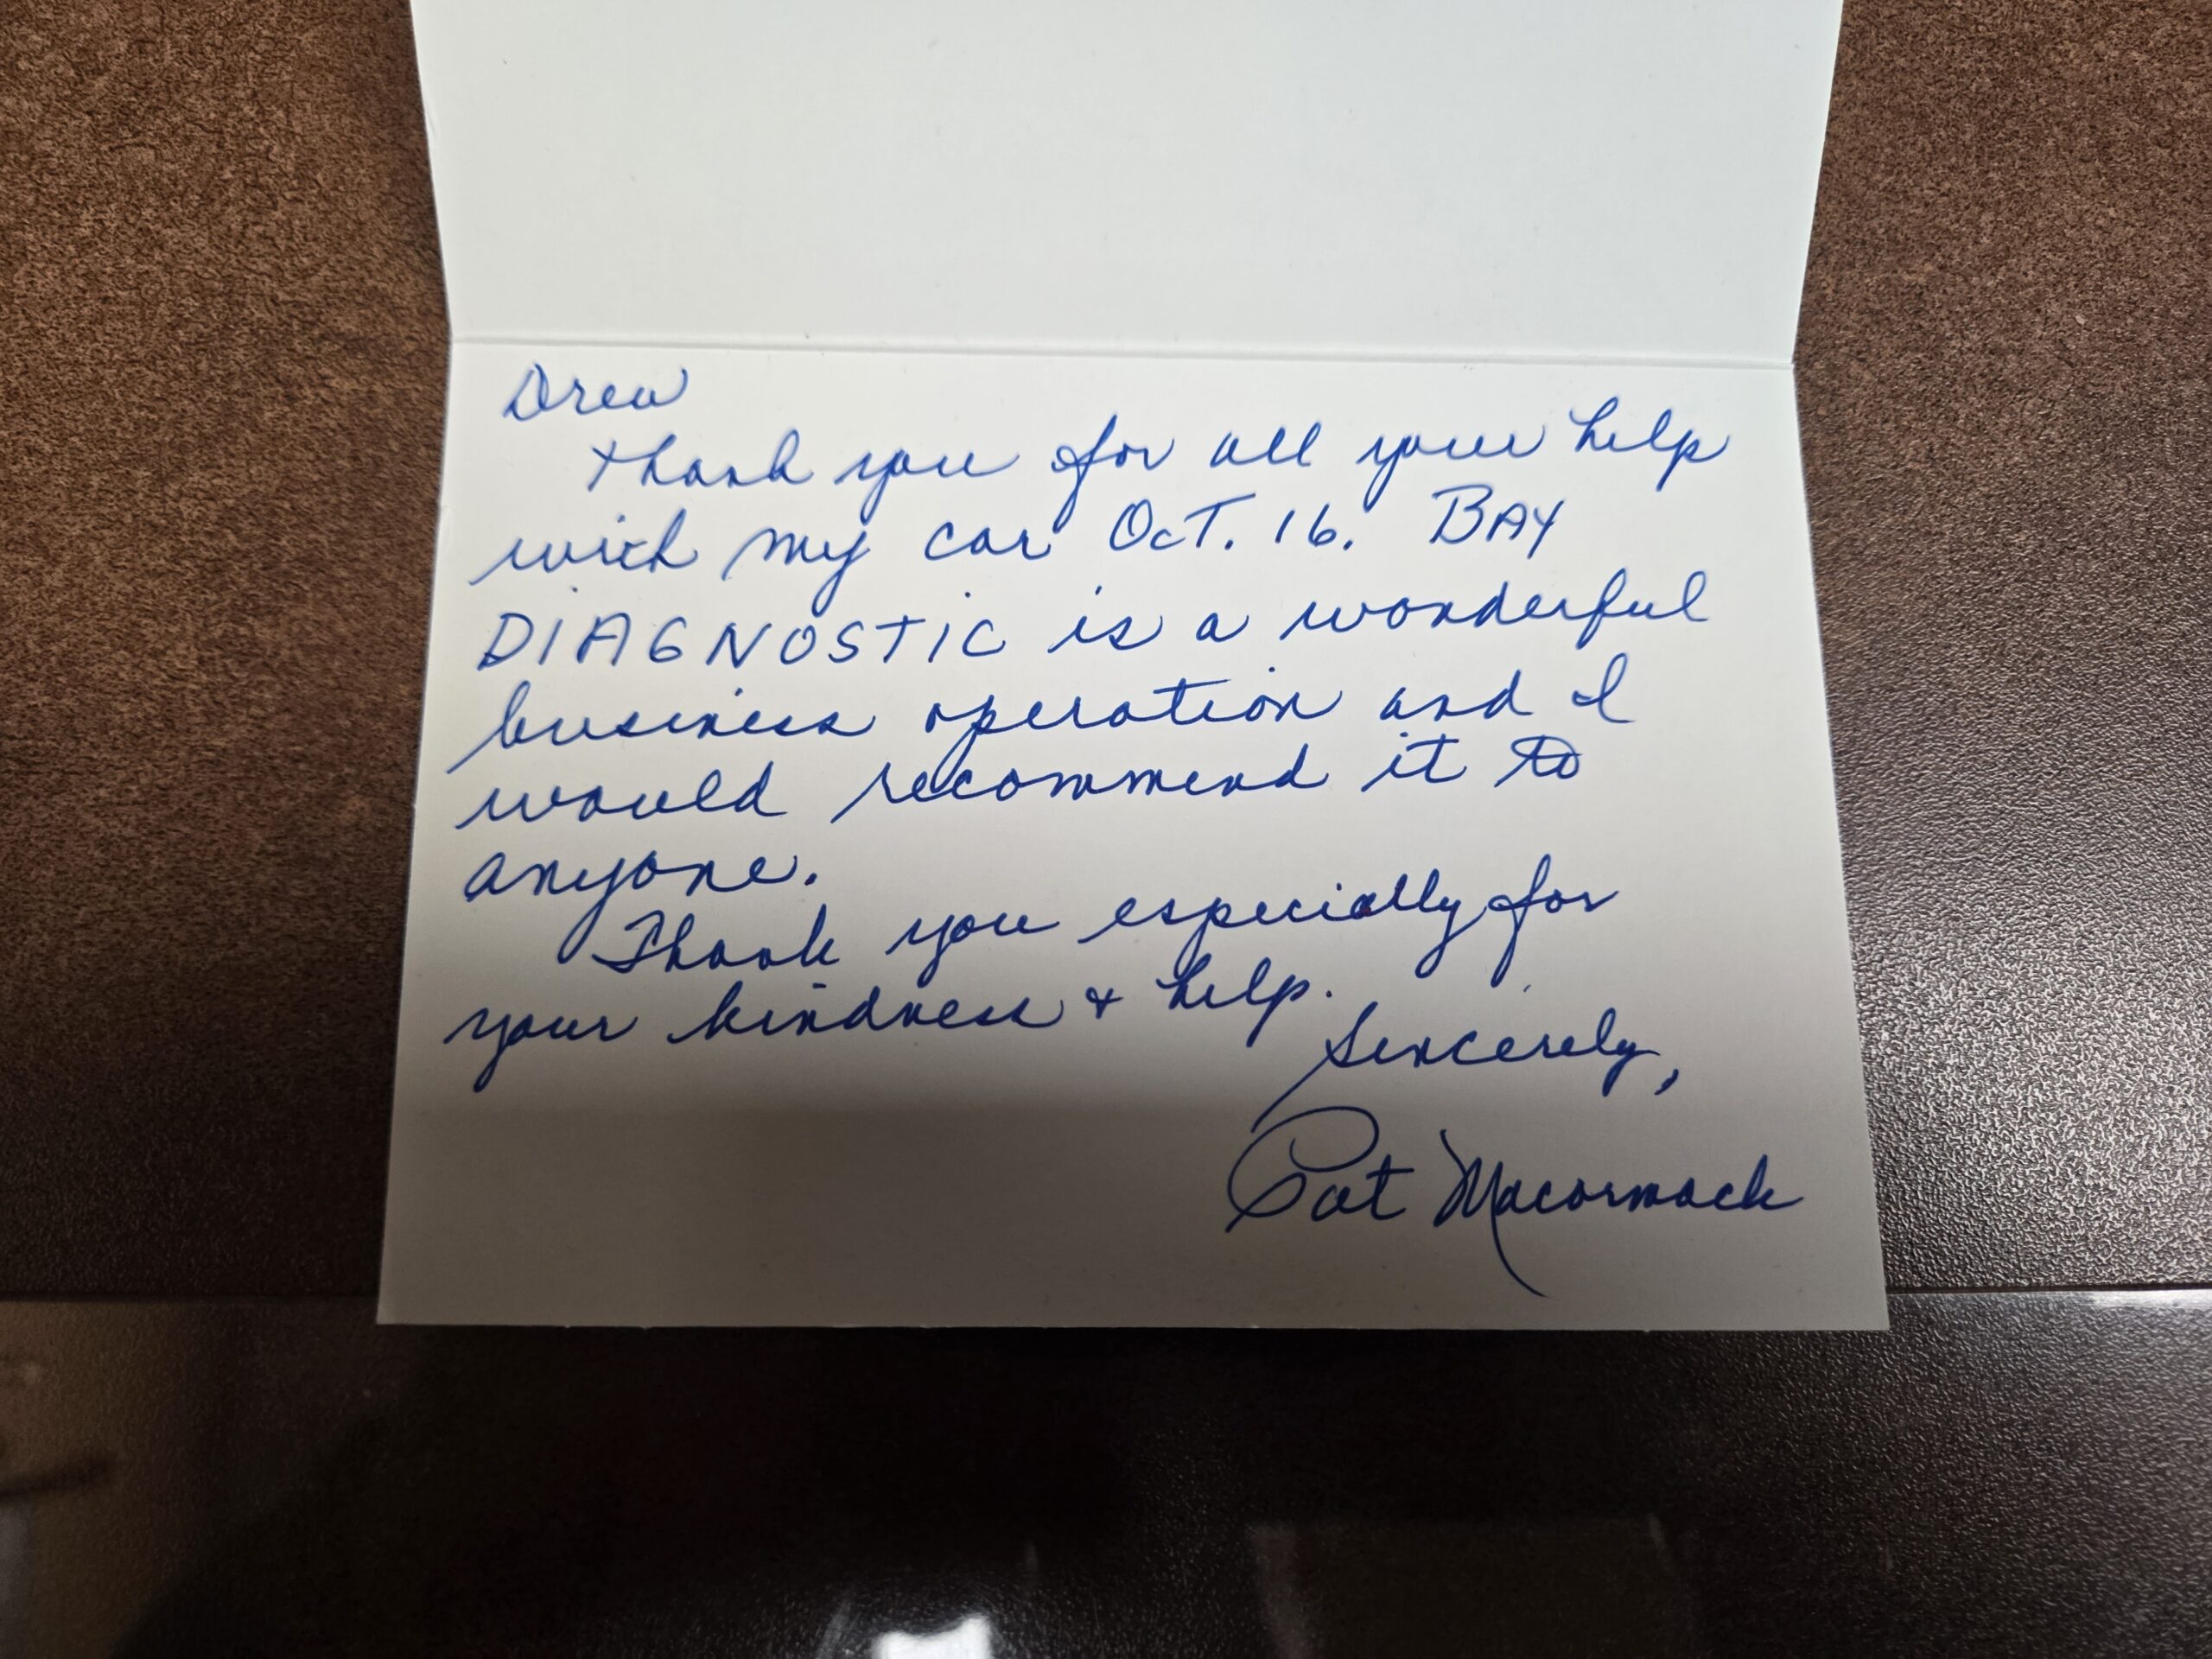 Drew
Thank you for all your help
with my car Oct. 16. BAY
DIAGNOSTIC is a wonderful
business operation and I
would recommend it to
anyone.
Thank you especially for
your kindness + help.
Sincerely,
Pat Macormack